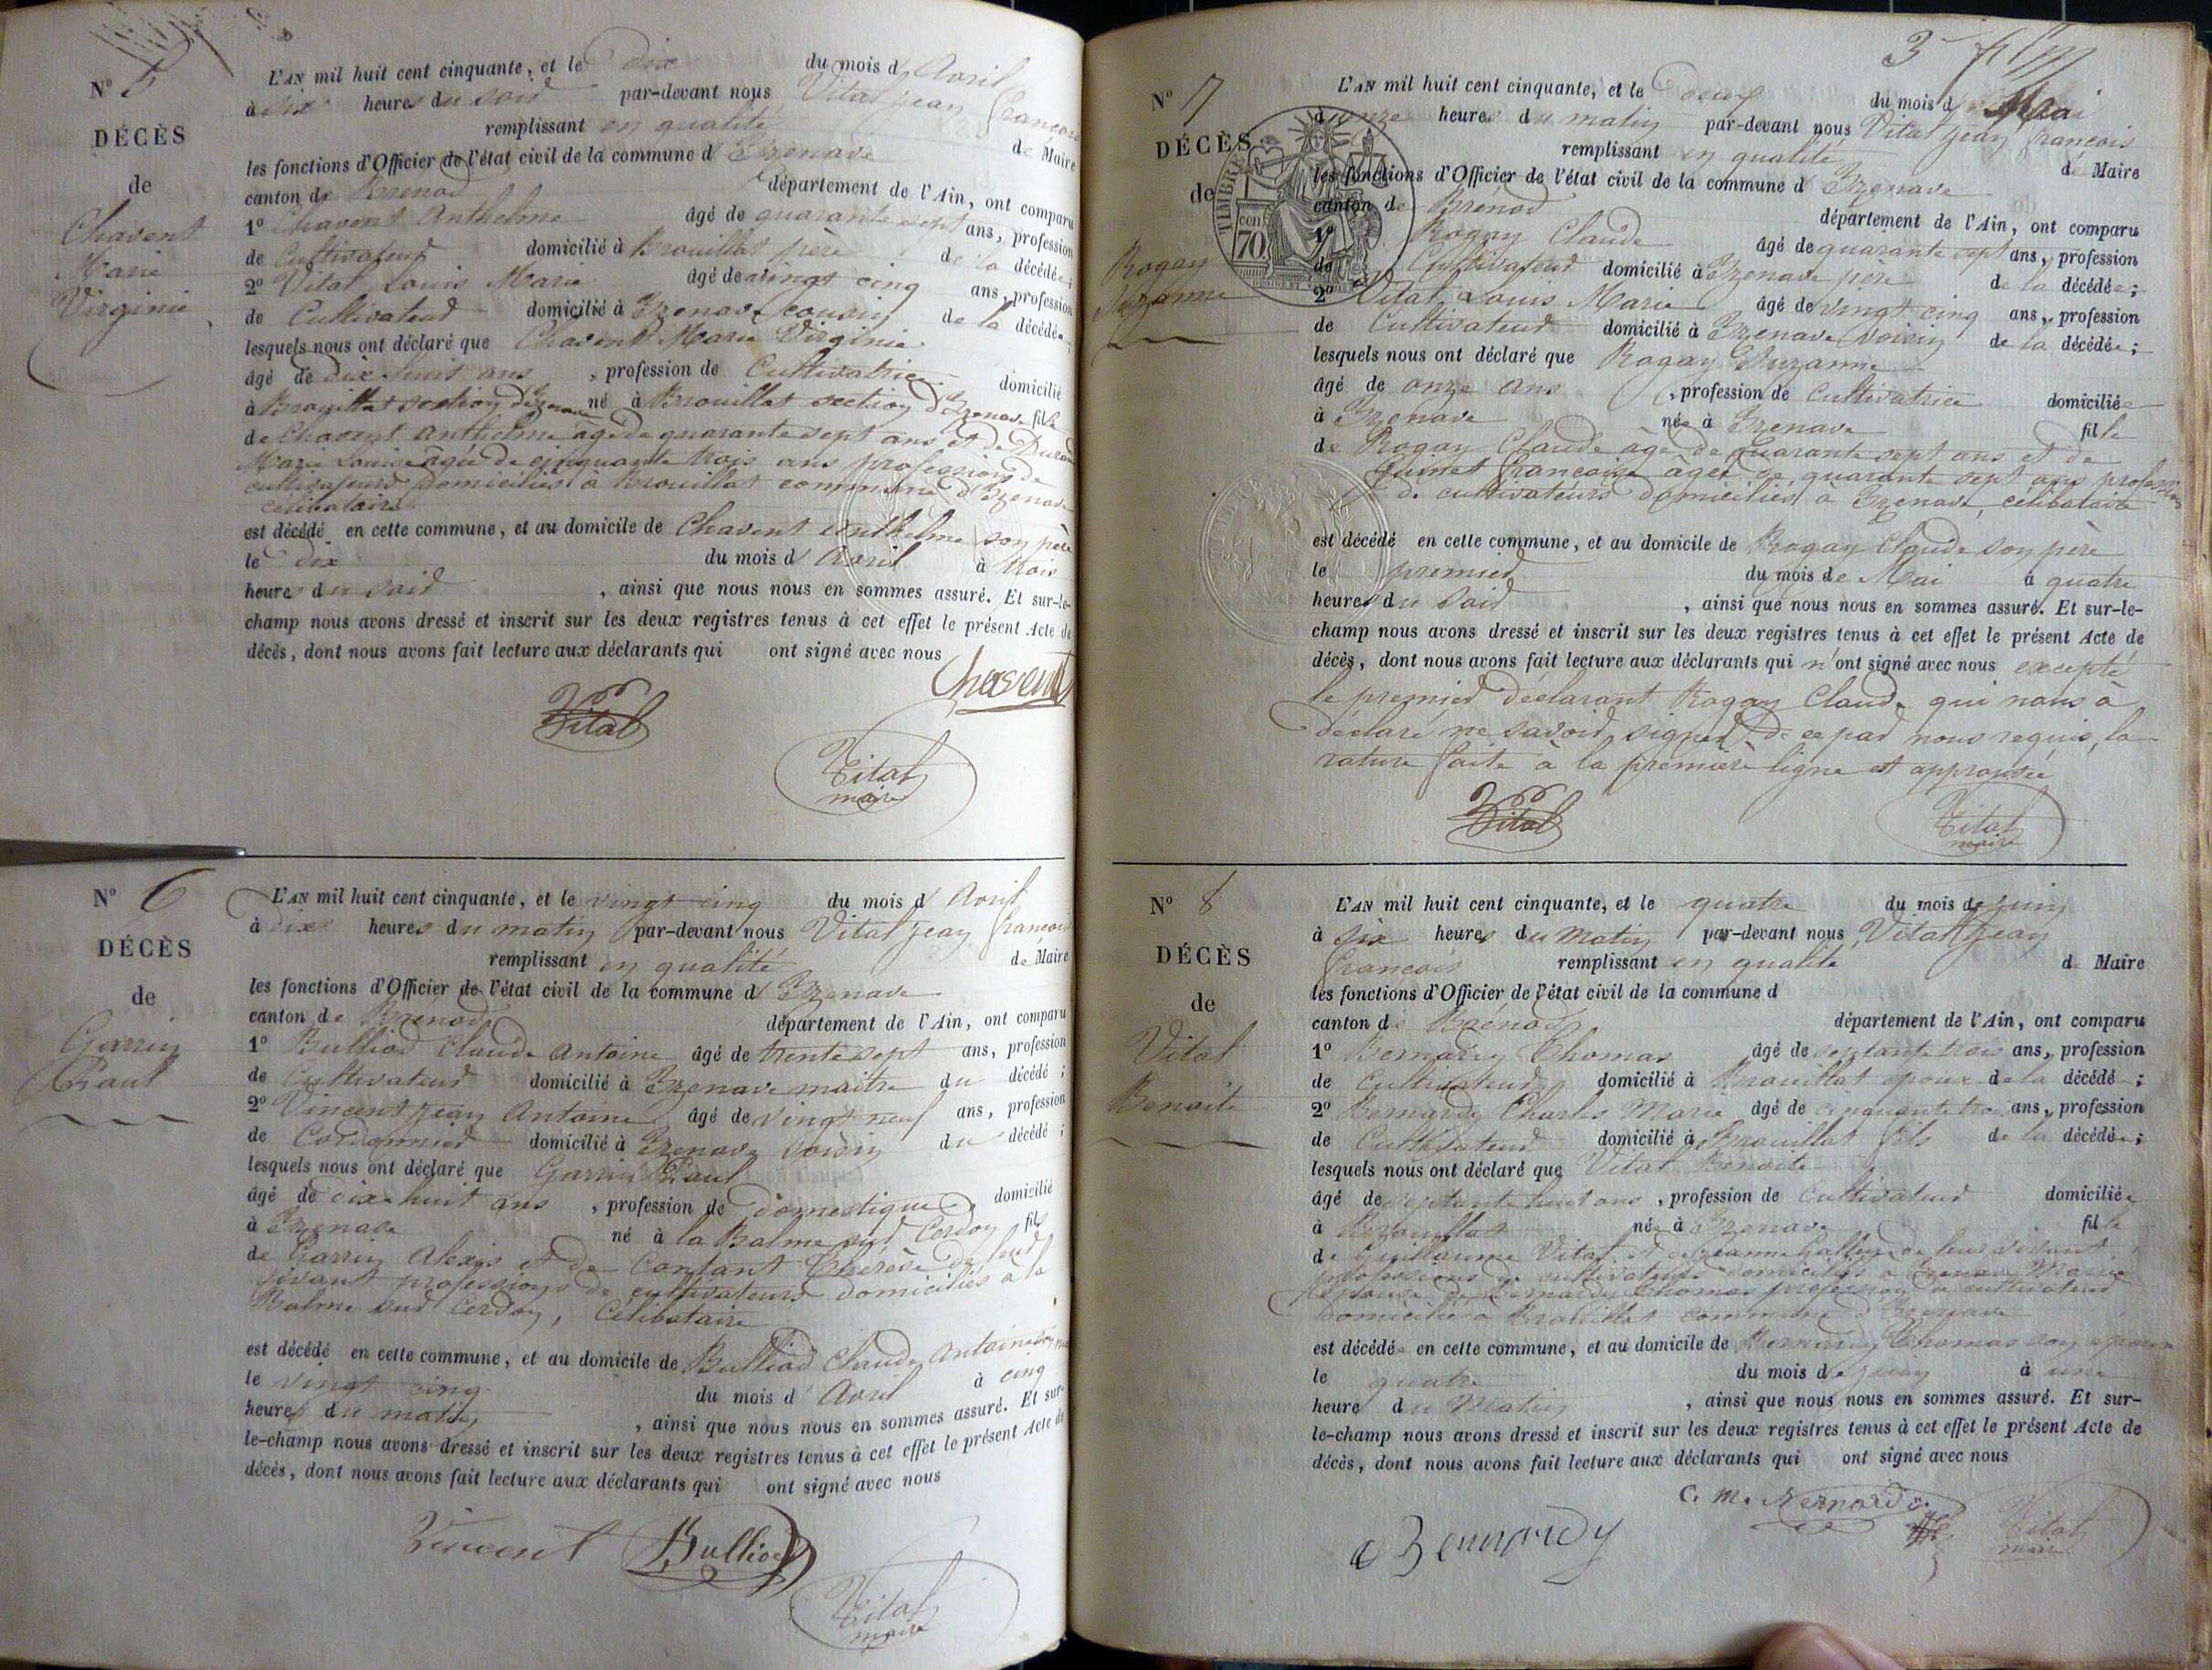 N° 5
DÉCÈS
de
Chavent
Marie
Virginie
L'AN mil huit cent cinquante, et le dix du mois d'Avril
à six heures du soir par-devant nous Vital Jean François
remplissant en qualité de Maire
les fonctions d'Officier de l'état civil de la commune d'Izenave
canton de Brenod département de l'Ain, ont comparu
1° Chavent Anthelme âgé de quarante sept ans, profession
de Cultivateur domicilié à Brouillat père de la décédée;
2° Vital Louis Marie âgé de vingt cinq ans, profession
de Cultivateur domicilié à Izenave cousin de la décédée;
lesquels nous ont déclaré que Chavent Marie Virginie
âgé de dix huit ans, profession de Cultivatrice domicilié
à Brouillat section d'Izenave né à Brouillat section d'Izenave fille
de Chavent Anthelme âgé de quarante sept ans et de Durand
Marie Louise âgée de cinquante trois ans professions de
cultivateurs domiciliés à Brouillat commune d'Izenave
célibataire
est décédé en cette commune, et au domicile de Chavent Anthelme son père
le dix du mois d'Avril à trois
heures du soir, ainsi que nous nous en sommes assuré. Et sur-le-
champ nous avons dressé et inscrit sur les deux registres tenus à cet effet le présent Acte de
décès, dont nous avons fait lecture aux déclarants qui ont signé avec nous
Chavent
Vital
Vital
maire
N° 6
DÉCÈS
de
Garrin
Paul
L'AN mil huit cent cinquante, et le vingt cinq du mois d'Avril
à dix heures du matin par-devant nous Vital Jean François
remplissant en qualité de Maire
les fonctions d'Officier de l'état civil de la commune d'Izenave
canton de Brenod département de l'Ain, ont comparu
1° Bulliod Claude Antoine âgé de trente sept ans, profession
de Cultivateur domicilié à Izenave maître du décédé;
2° Vincent Jean Antoine âgé de vingt neuf ans, profession
de Cordonnier domicilié à Izenave voisin du décédé;
lesquels nous ont déclaré que Garrin Paul
âgé de dix huit ans, profession de domestique domicilié
à Izenave né à la Balme sur Cerdon fils
de Garrin Alexis et de Contant Thérèse de leur
vivant professions de cultivateurs domiciliés à la
Balme sur Cerdon, Célibataire
est décédé en cette commune, et au domicile de Bulliod Claude Antoine son
le vingt cinq du mois d'Avril à cinq
heures du matin, ainsi que nous nous en sommes assuré. Et sur-
le-champ nous avons dressé et inscrit sur les deux registres tenus à cet effet le présent Acte de
décès, dont nous avons fait lecture aux déclarants qui ont signé avec nous
Vincent Bulliod
Vital
maire
3
N° 7
DÉCÈS
de
Rogay
Suzanne
TIMBRE
cen
70
L'AN mil huit cent cinquante, et le deux du mois de Mai
à onze heures du matin par-devant nous Vital Jean François
remplissant en qualité de Maire
les fonctions d'Officier de l'état civil de la commune d'Izenave
canton de Brénod département de l'Ain, ont comparu
1° Rogay Claude âgé de quarante sept ans, profession
de Cultivateur domicilié à Izenave père de la décédée;
2° Vital Louis Marie âgé de vingt cinq ans, profession
de Cultivateur domicilié à Izenave voisin de la décédée;
lesquels nous ont déclaré que Rogay Suzanne
âgé de onze ans, profession de Cultivatrice domiciliée
à Izenave née à Izenave fille
de Rogay Claude âgé de quarante sept ans et de
françoise âgée de quarante sept ans professions
de cultivateurs domiciliés à Izenave, célibataire
est décédé en cette commune, et au domicile de Rogay Claude son père
le premier du mois de Mai à quatre
heures du soir, ainsi que nous nous en sommes assuré. Et sur-le-
champ nous avons dressé et inscrit sur les deux registres tenus à cet effet le présent Acte de
décès, dont nous avons fait lecture aux déclarants qui n'ont signé avec nous excepté
le premier déclarant Rogay Claude qui nous à
déclaré ne savoir signer de ce par nous requis, la
rature faite à la première ligne est approuvée
Vital
Vital
maire
N° 8
DÉCÈS
de
Vital
Benoite
L'AN mil huit cent cinquante, et le quatre du mois de juin
à six heures du Matin par-devant nous Vital Jean
François remplissant en qualité de Maire
les fonctions d'Officier de l'état civil de la commune d
canton de Brénod département de l'Ain, ont comparu
1° Bernardy Thomas âgé de septante trois ans, profession
de Cultivateur domicilié à Brouillat époux de la décédé;
2° Bernardy Charles Marie âgé de cinquante trois ans, profession
de Cultivateur domicilié à Brouillat fils de la décédée;
lesquels nous ont déclaré que Vital Benoite
âgé de septante huit ans, profession de Cultivateur domiciliée
à Brouillat née à Izenave fille
de Guillaume Vital et de Jeanne de leur vivant
professions de cultivateurs domiciliés à Izenave Mariée
épouse de Bernardy Thomas profession de cultivateur
domicilié à Brouillat commune d'Izenave
est décédée en cette commune, et au domicile de Bernardy Thomas son époux
le quatre du mois de juin à une
heure du Matin, ainsi que nous nous en sommes assuré. Et sur-
le-champ nous avons dressé et inscrit sur les deux registres tenus à cet effet le présent Acte de
décès, dont nous avons fait lecture aux déclarants qui ont signé avec nous
C. M. Bernardy
Bernardy
Vital
maire